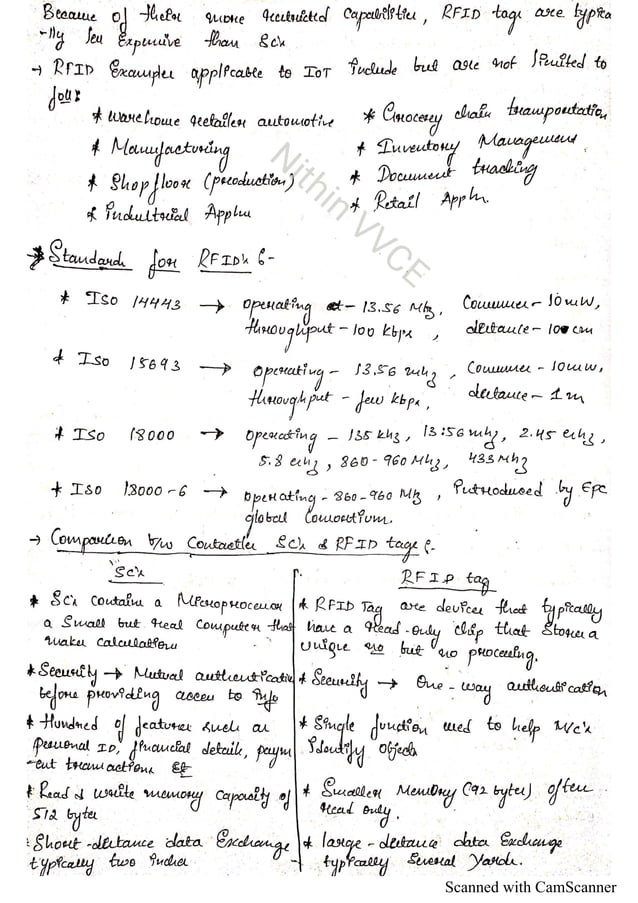 Because of their more restricted capabilities, RFID tags are typica
-lly less Expensive than SC's
→ RFID Examples applicable to IoT include but are not limited to
foll:
* warehouse retailer automotive * Grocery chain transportation
* Manufacturing * Inventory Management
* Shopfloor (production) * Document tracking
* Industrial Appln * Retail Appln.
Nithin VVCE
* Standards for RFID's :-
* ISO 14443 → operating - 13.56 Mhz, Consumes - 10mW,
throughput - 100 kbps, distance - 10 cm
* ISO 15693 → operating - 13.56 mhz, Consumes - 10mw,
throughput - few kbps, distance - 1 m
* ISO 18000 → operating - 135 khz, 13.56 mhz, 2.45 ghz,
5.8 ghz, 860-960 Mhz, 433 Mhz
* ISO 18000-6 → operating - 860-960 Mhz, Introduced by EPC
global Consortium.
→ Comparison b/w Contactless SC's & RFID tags :-
SC's
* SC's Contains a Microprocessor
a small but real Computer that
makes calculations
* Security → Mutual authenticatio
before providing access to info
* Hundred of features such as
Personal ID, financial details, paym
-ent transactions
* Read & write memory capacity of
512 bytes
* Short-distance data Exchange
typically two inches
RFID tag
* RFID Tag are devices that typically
have a read-only chip that stores a
unique no but no processing.
* Security → One-way authentication
* Single function used to help M/c's
Identify objects
* Smaller Memory (92 bytes) often
read only.
* large-distance data Exchange
typically several Yards.
Scanned with CamScanner